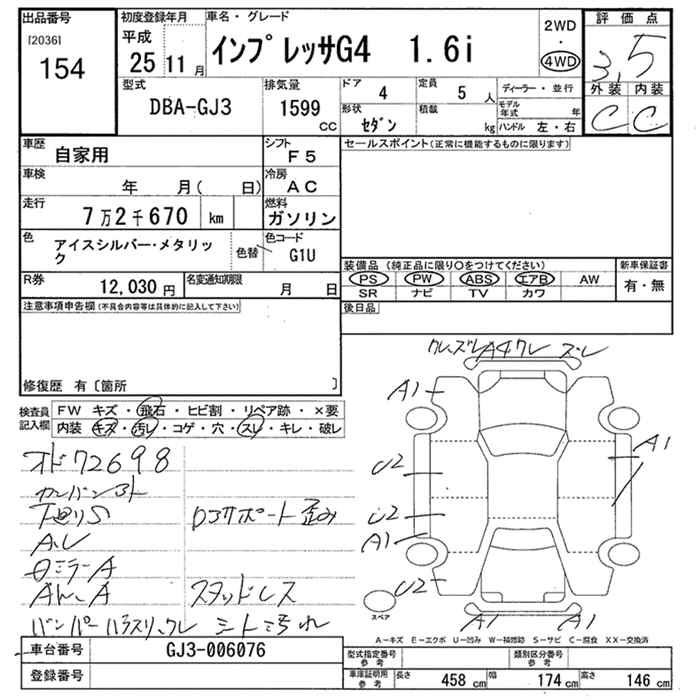 出品番号
[2036]
154
初度登録年月
平成
25 11月
車名・グレード
インプレッサG4 1.6i
2WD
・
4WD
評価点
3.5
外装 内装
C C
型式
DBA-GJ3
排気量
1599 CC
ドア 4
定員 5人
形状 セダン
積載 kg
ディーラー・並行
モデル年式 年
ハンドル 左・右
車歴
自家用
シフト F5
車検
年 月( 日)
冷房 AC
走行
7万2千670 km
燃料 ガソリン
色
アイスシルバー・メタリック
色替
色コード G1U
R券 12,030円
名変通知期限 月 日
セールスポイント(正常に機能するものに限ります)
装備品 (純正品に限り○をつけてください)
PS PW ABS エアB AW
SR ナビ TV カワ
新車保証書
有・無
後日品
注意事項申告欄(不具合内容等は具体的に記入して下さい)
修復歴 有〔箇所 〕
検査員記入欄
FW キズ・飛石・ヒビ割・リペア跡・×要
内装 キズ・汚レ・コゲ・穴・スレ・キレ・破レ
オド72698
下回りS
D3サポート歪み
ミラーA
スタッドレス
バンパー
シート汚れ
A4
A1
A1
U2
U2
A1
U2
A1 A1
スペア
A-キズ E-エクボ U-凹み W-補修跡 S-サビ C-腐食 XX-交換済
車台番号 GJ3-006076
登録番号
型式指定番号 参考
類別区分番号 参考
車庫証明用 参考
長さ 458 cm 幅 174 cm 高さ 146 cm